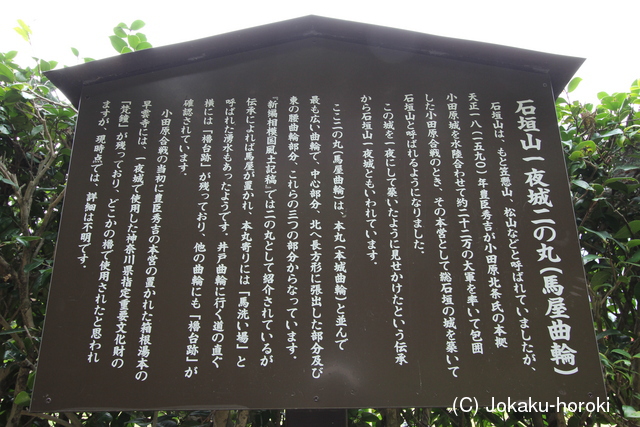 石垣山一夜城二の丸(馬屋曲輪)
石垣山は、もと笠懸山、松山などと呼ばれていましたが、
天正一八(一五九〇)年豊臣秀吉が小田原北条氏の本拠
小田原城を水陸合わせて約二十二万の大軍を率いて包囲
した小田原合戦のとき、その本営として総石垣の城を築いて
石垣山と呼ばれるようになりました。
この城を一夜にして築いたように見せかけたという伝承
から石垣山一夜城ともいわれています。
ここ二の丸(馬屋曲輪)は、本丸(本城曲輪)と並んで
最も広い曲輪で、中心部分、北へ長方形に張出した部分及び
東の腰曲輪部分、これらの三つの部分からなっています。
「新編相模国風土記稿」では二の丸として紹介されているが
伝承によれば馬屋が置かれ、本丸寄りには「馬洗い場」と
呼ばれた湧水もあったようです。井戸曲輪に行く道の直ぐ
横には「櫓台跡」が残っており、他の曲輪にも「櫓台跡」が
確認されています。
小田原合戦の当初に豊臣秀吉の本営の置かれた箱根湯本の
早雲寺には、一夜城で使用した神奈川県指定重要文化財の
「梵鐘」が残っており、どこかの櫓で使用されたと思われ
ますが、現時点では、詳細は不明です。
(C) Jokaku-horoki